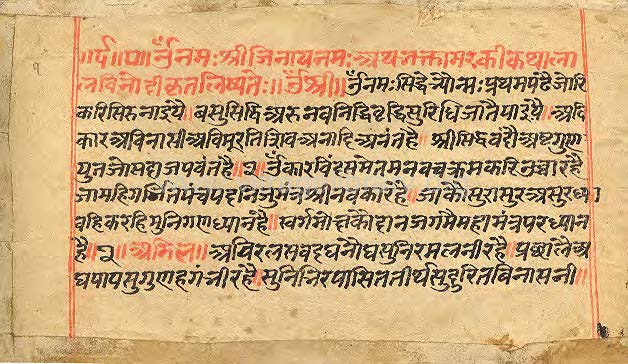 ॥र्द॥०॥ ॐनमः श्रीजिनायनमः अथभक्तामरकीकथाला
लविनोदीकृतलिष्यतेः॥ॐश्री॥ ॐनमः सिद्धेभ्योनमः प्रथमपंदौजोरि
करिसिरुनाइयै॥ वसुसिद्धिअरुनवनिद्धिवृद्धिसुरिधिजातैपाइयै॥ अवि
कारअविनासीअविमूरतिशिवअनादिअनंतहै॥ श्रीसिद्धवंदौअष्टगुण
युतजोमहाजपवंतहै॥१॥ॐकारविंदुसमेतमनवचक्रमकरिनुच्चारहै
जामहिगर्भितपंचपदनिजुमंत्रश्रीनवकारहै॥ जाकौसुरासुरअसुरध्या
वहिकरहिमुनिगणध्यानहै॥ स्वर्गमोक्षकौदानजगमैमहामंत्रपरध्यान
है॥२॥अमिल॥ अविरलसवदघनौघसुनिरमलनीरहै॥ प्रछालैअ
घपापसुगुणहगंभीरहै॥ सुनिनिरपासिततीर्थसुदुरितविनासनी॥